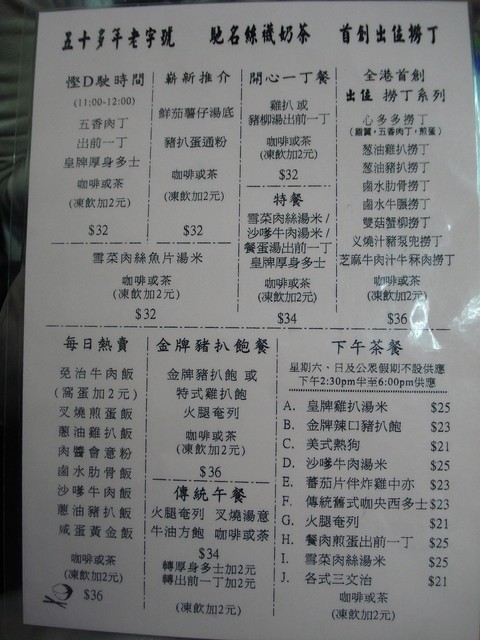 五十多年老字號 馳名絲襪奶茶 首創出位撈丁
慳D駛時間
(11:00-12:00)
五香肉丁
出前一丁
皇牌厚身多士
咖啡或茶
(凍飲加2元)
$32
嶄新推介
鮮茄薯仔湯底
豬扒蛋通粉
咖啡或茶
(凍飲加2元)
$32
雪菜肉絲魚片湯米
咖啡或茶
(凍飲加2元)
$32
開心一丁餐
雞扒 或
豬柳湯出前一丁
咖啡或茶
(凍飲加2元)
$32
特餐
雪菜肉絲湯米/
沙嗲牛肉湯米/
餐蛋湯出前一丁
皇牌厚身多士
咖啡或茶
(凍飲加2元)
$34
全港首創
出位 撈丁系列
心多多撈丁
(雞翼，五香肉丁，煎蛋)
葱油雞扒撈丁
葱油豬扒撈丁
鹵水肋骨撈丁
鹵水牛𦟌撈丁
雙菇蟹柳撈丁
义燒汁豬頸兜撈丁
芝麻牛肉汁牛冧肉撈丁
咖啡或茶
(凍飲加2元)
$36
每日熱賣
免治牛肉飯
(窩蛋加2元)
叉燒煎蛋飯
蔥油雞扒飯
肉醬會意粉
鹵水肋骨飯
沙嗲牛肉飯
蔥油豬扒飯
咸蛋黃金飯
咖啡或茶
(凍飲加2元)
$36
金牌豬扒飽餐
金牌豬扒飽 或
特式雞扒飽
火腿奄列
咖啡或茶
(凍飲加2元)
$36
傳統午餐
火腿奄列 叉燒湯意
牛油方飽 咖啡或茶
$34
轉厚身多士加2元
轉出前一丁加2元
(凍飲加2元)
下午茶餐
星期六、日及公眾假期不設供應
下午2:30pm半至6:00pm供應
A. 皇牌雞扒湯米 $25
B. 金牌辣口豬扒飽 $23
C. 美式熱狗 $21
D. 沙嗲牛肉湯米 $25
E. 蕃茄片伴炸雞中亦 $23
F. 傳統舊式咖央西多士 $23
G. 火腿奄列 $21
H. 餐肉煎蛋出前一丁 $25
I. 雪菜肉絲湯米 $25
J. 各式三文治 $21
咖啡或茶
(凍飲加2元)